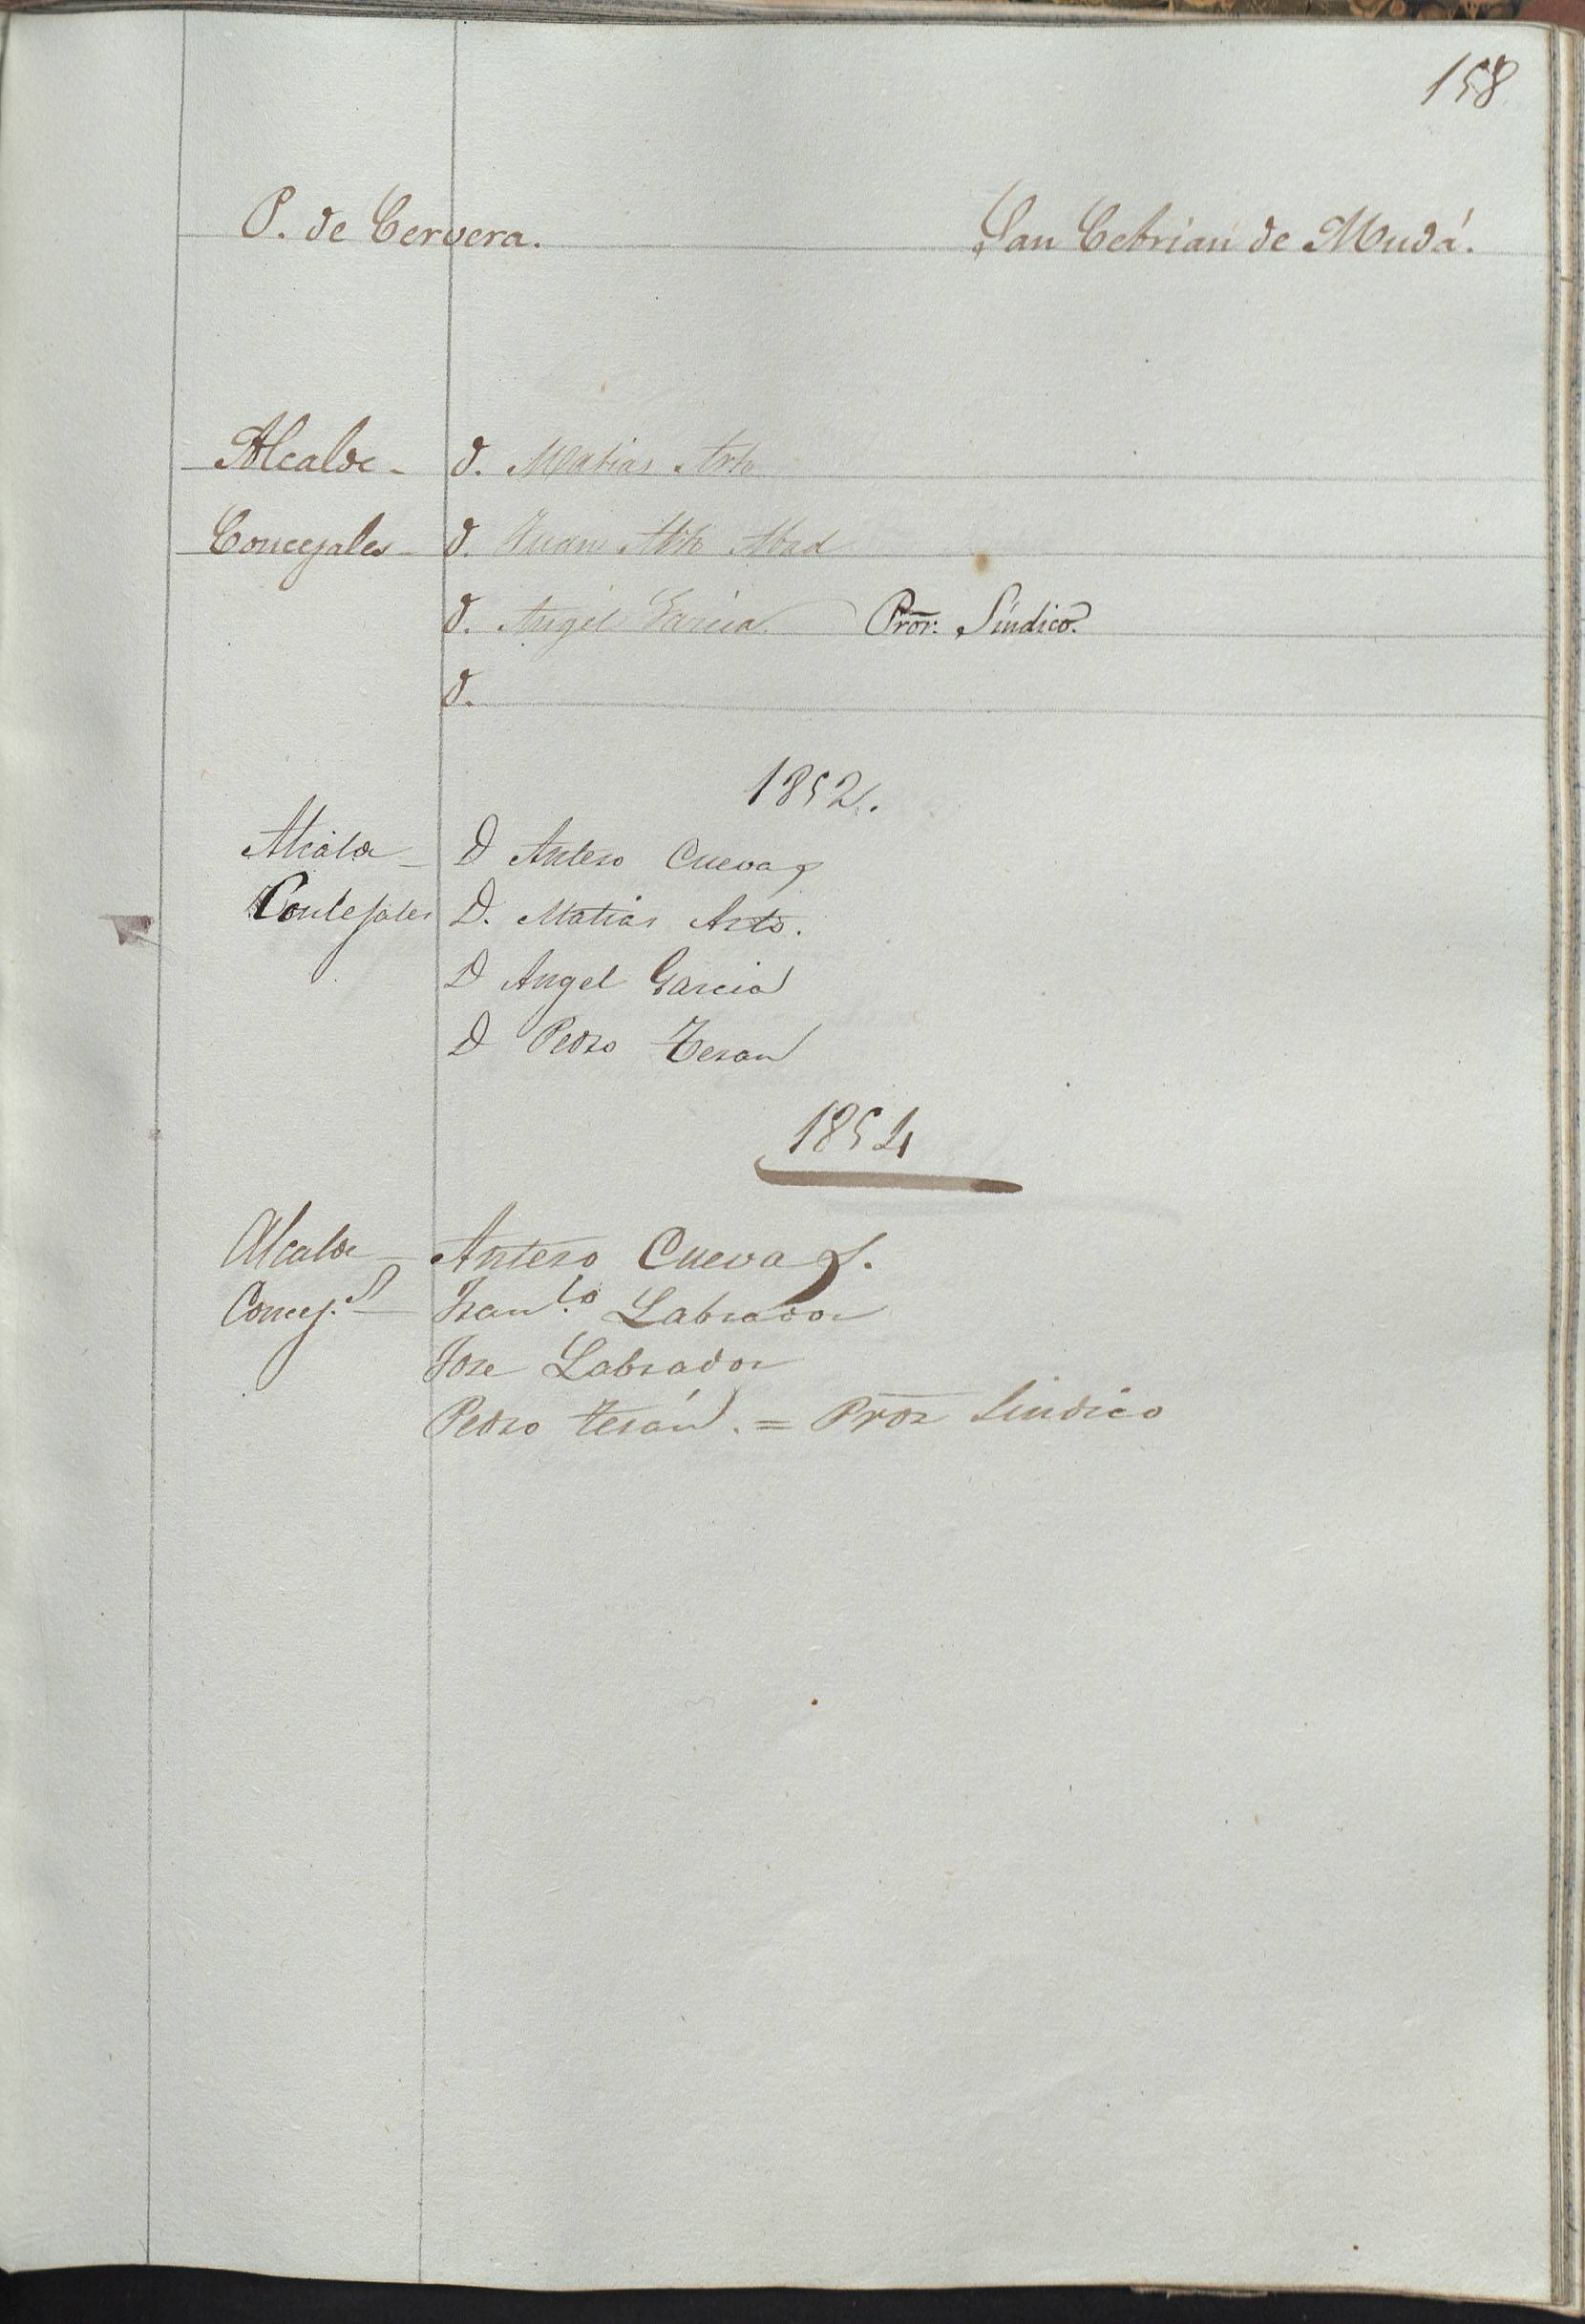 158
P. de Cervera. San Cebrian de Mudá.
Alcalde - D. Matias Arto
Concejales - D. Juan Arto Abad
D. Angel Garcia. Pror: Síndico.
D.
1852.
Alcalde - D Antero Cuevas
Concejales D. Matias Arto.
D Angel Garcia
D Pedro Teran
1854
Alcalde - Antero Cuevas.
Concej.s - Franco. Labrador
Jose Labrador
Pedro terán. = Pror Sindico